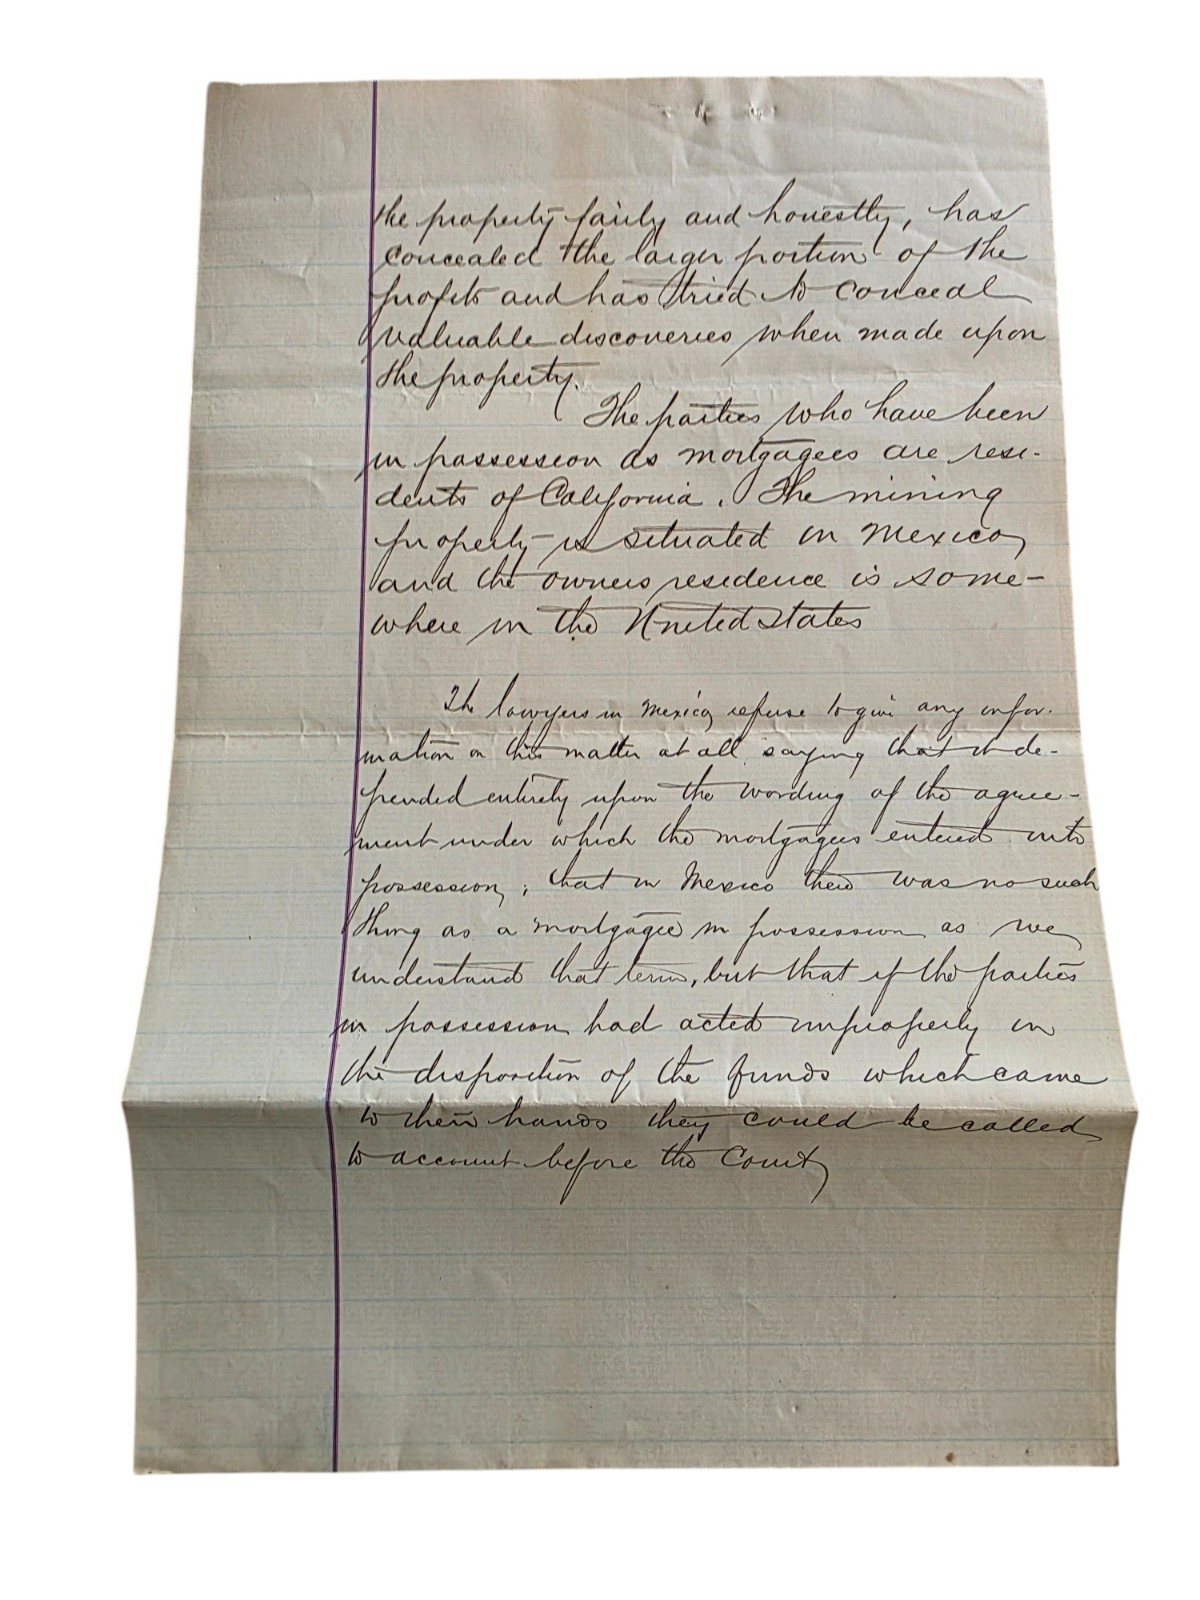 the property fairly and honestly, has
concealed the larger portion of the
profits and has tried to conceal
valuable discoveries when made upon
the property.
The parties who have been
in possession as mortgagees are resi-
dents of California. The mining
property is situated in Mexico,
and the owners residence is some-
where in the United States
The lawyers in Mexico, refuse to give any infor-
mation on this matter at all, saying that it de-
pended entirely upon the wording of the agree-
ment under which the mortgagees entered into
possession, ; that in Mexico there was no such
thing as a mortgagee in possession as we
understand that term, but that if the parties
in possession had acted improperly in
the disposition of the funds which came
to their hands they could be called
to account before the Court,